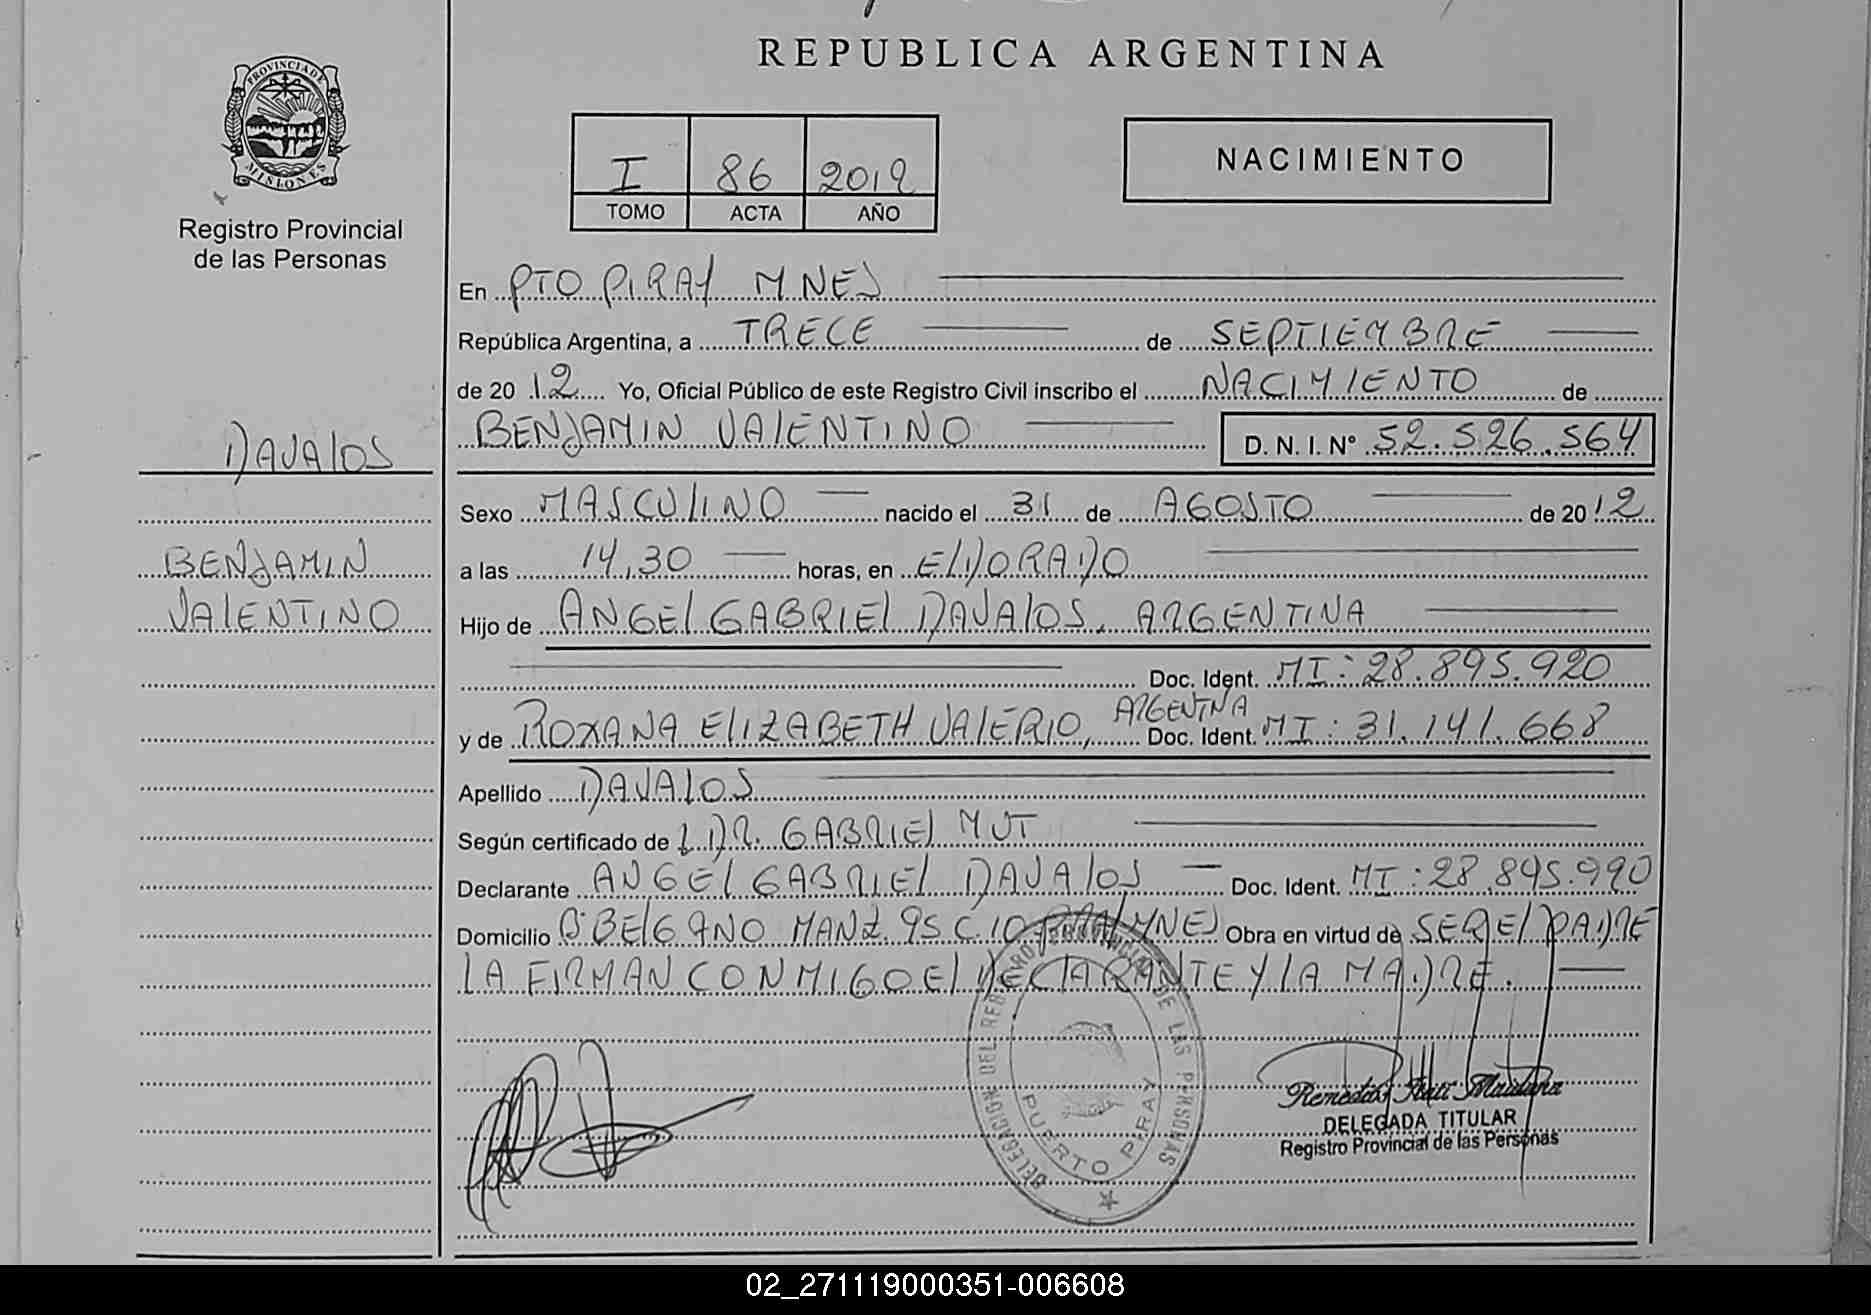 REPUBLICA ARGENTINA
PROVINCIA DE
MISIONES
Registro Provincial
de las Personas
I 86 2012
TOMO ACTA AÑO
NACIMIENTO
En PTO PIRAY MNES
República Argentina, a TRECE de SEPTIEMBRE
de 20 12 Yo, Oficial Público de este Registro Civil inscribo el NACIMIENTO de
BENJAMIN VALENTINO D. N. I. Nº 52.526.564
DAVALOS
BENJAMIN
VALENTINO
Sexo MASCULINO nacido el 31 de AGOSTO de 20 12
a las 14,30 horas, en ELDORADO
Hijo de ANGEL GABRIEL DAVALOS, ARGENTINA
Doc. Ident. MI: 28.895.920
y de ROXANA ELIZABETH VALERIO, ARGENTINA Doc. Ident. MI: 31.141.668
Apellido DAVALOS
Según certificado de DR. GABRIEL MUT
Declarante ANGEL GABRIEL DAVALOS Doc. Ident. MI: 28.895.920
Domicilio Bº BELGANO MANZ 95 C 10 MNES Obra en virtud de SER EL PADRE
LA FIRMAN CONMIGO EL DECLARANTE Y LA MADRE.
DELEGACION DEL REGISTRO PROVINCIAL DE LAS PERSONAS
PUERTO PIRAY
DELEGADA TITULAR
Registro Provincial de las Personas
02_271119000351-006608